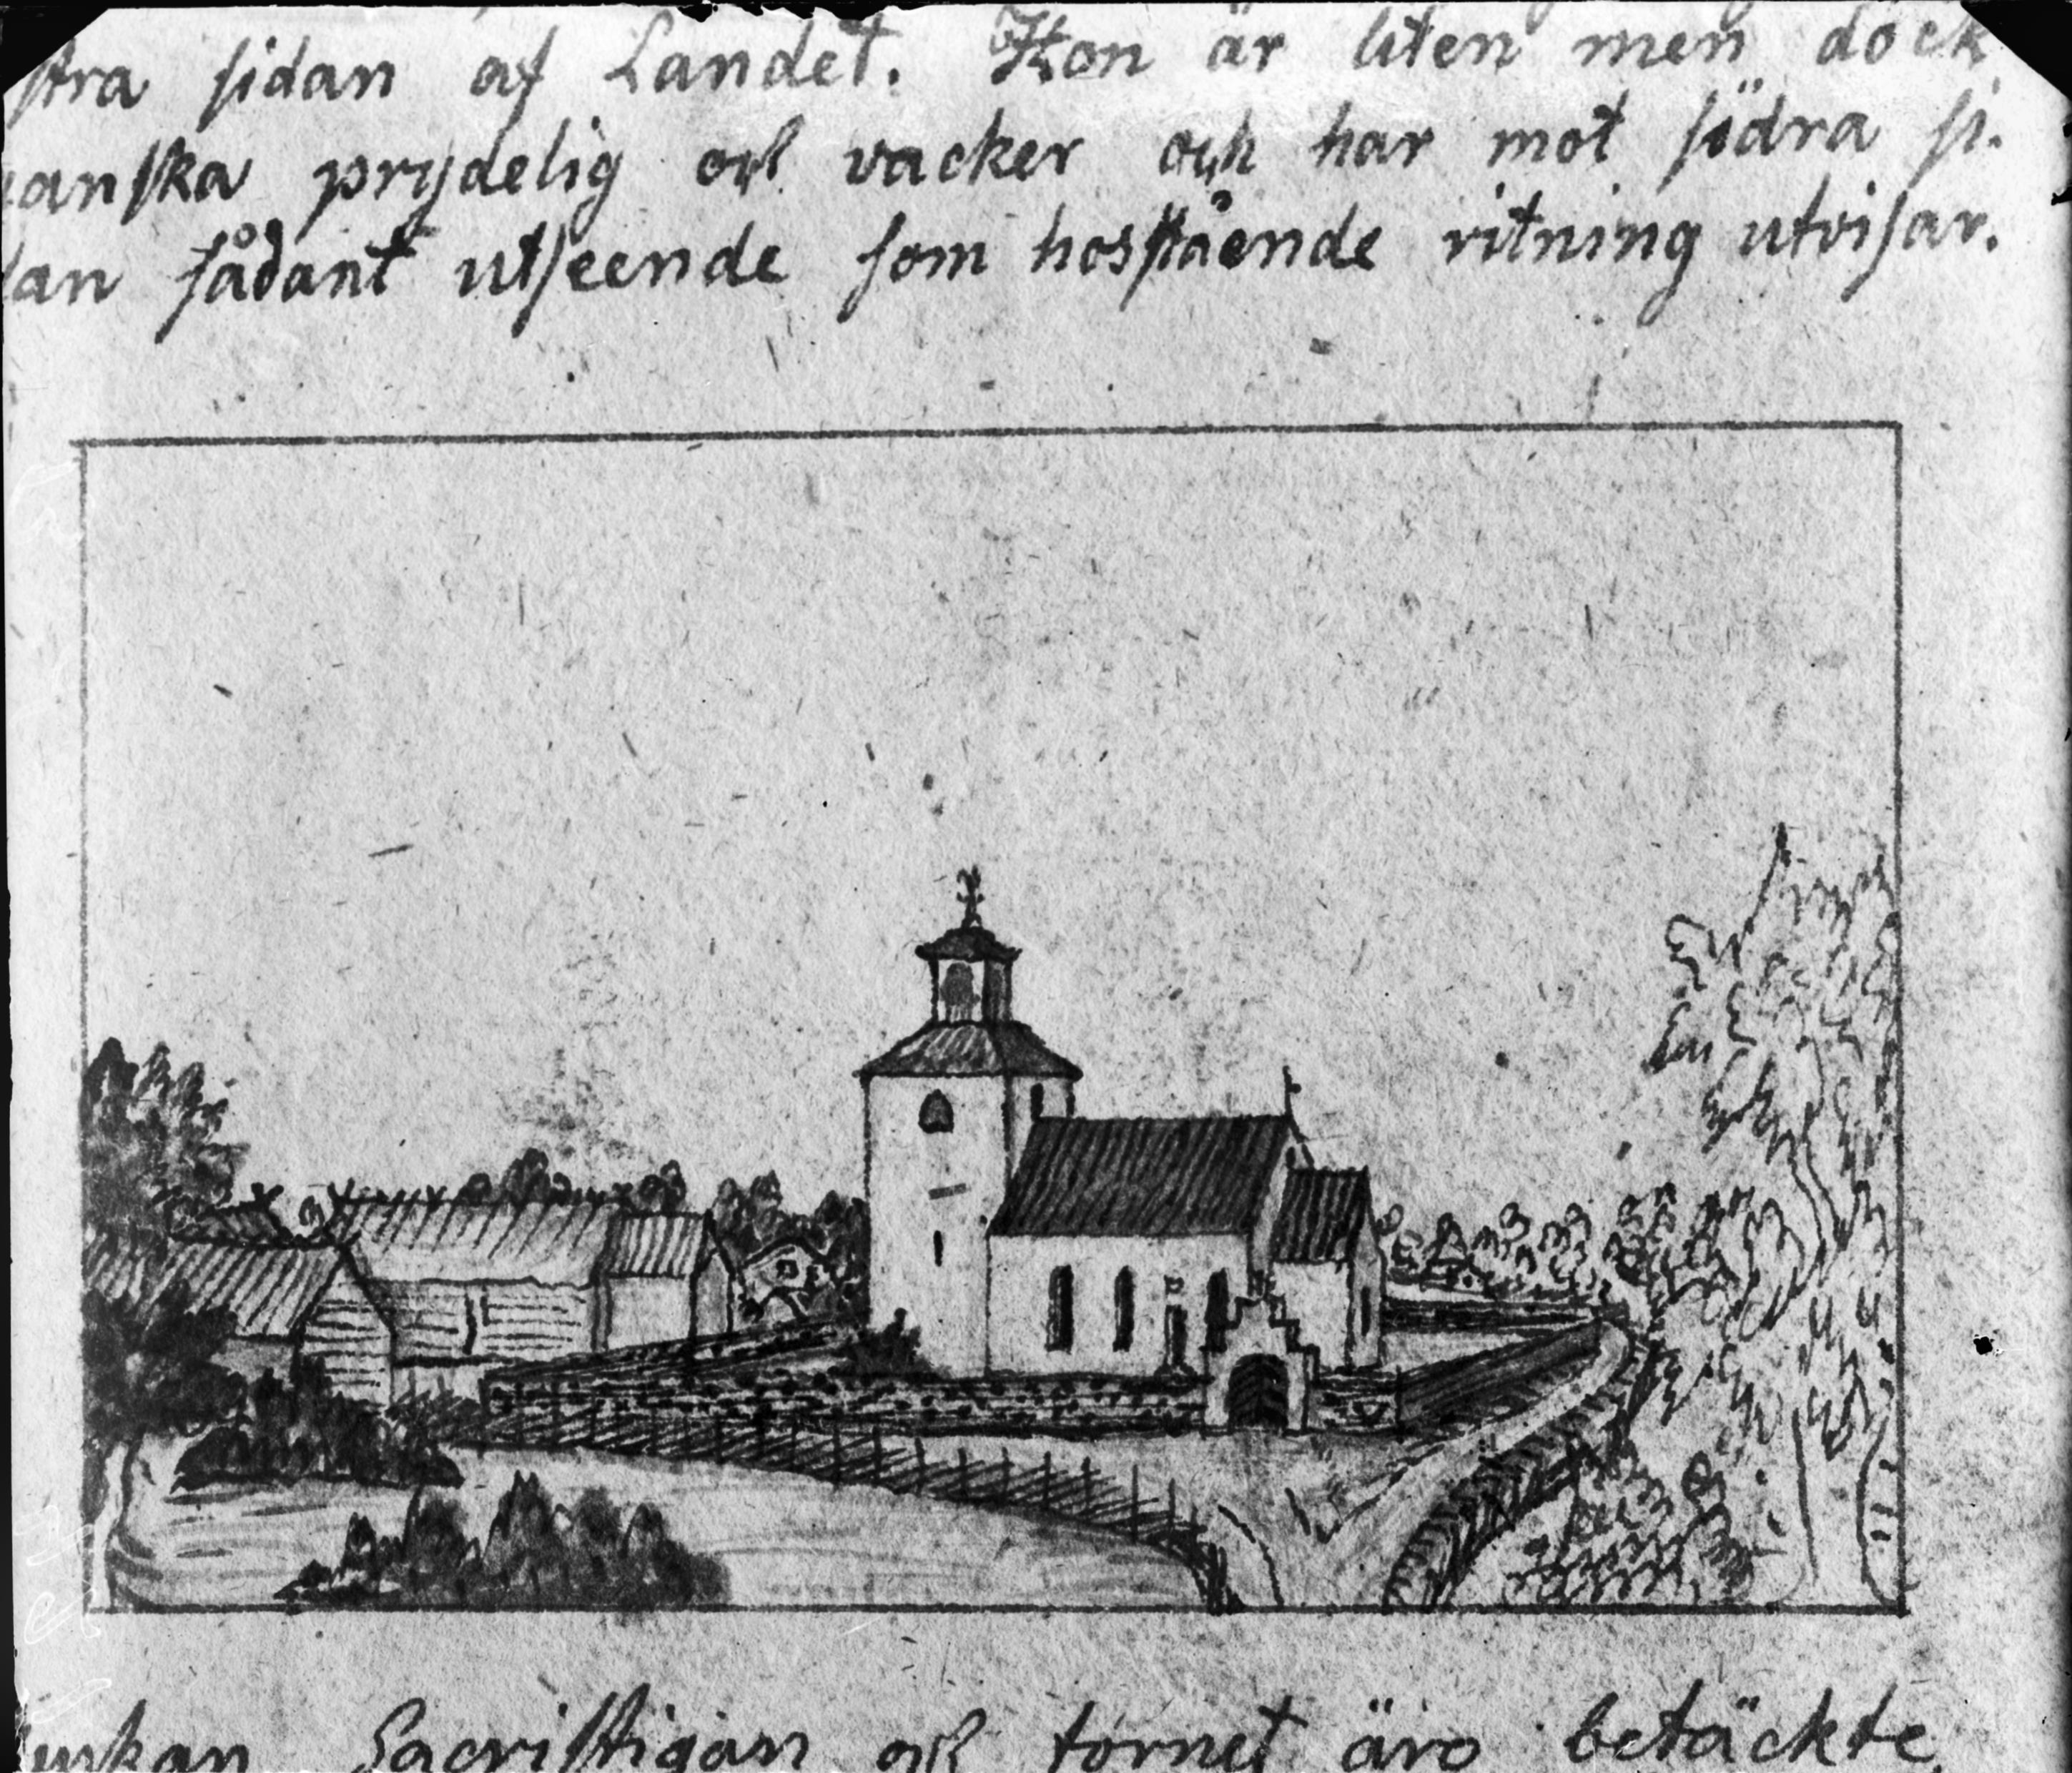 stra sidan af Landet. Hon är liten men dock
anska prydelig och vacker och har mot södra si-
dan sådant utseende som hosstående ritning utvisar.
Kyrkan Sacristigan och tornet äro betäckte